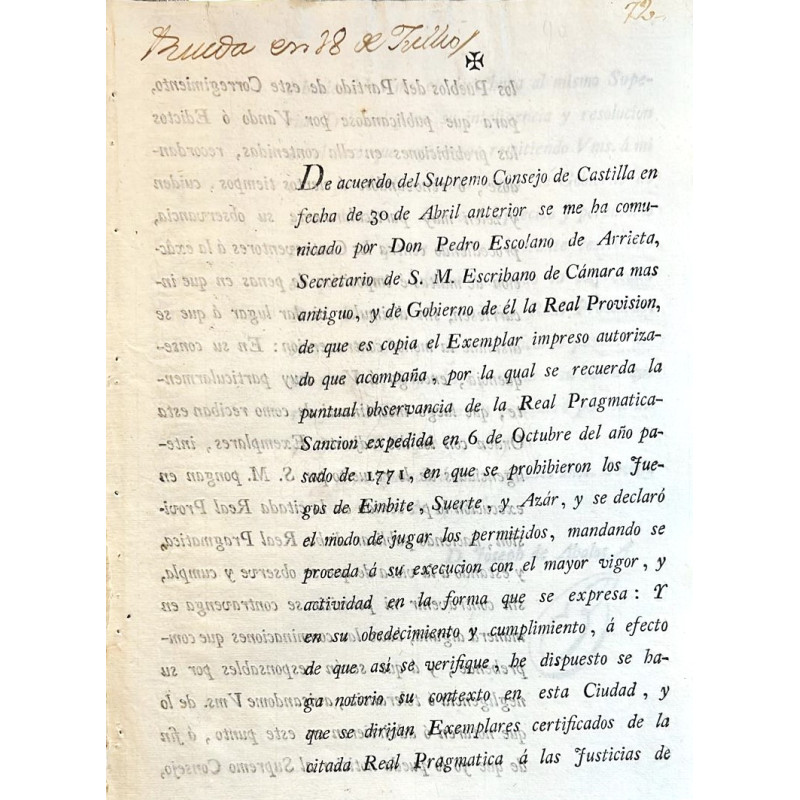 72
Rueda en 18 de Julio
✠
De acuerdo del Supremo Consejo de Castilla en
fecha de 30 de Abril anterior se me ha comu-
nicado por Don Pedro Escolano de Arrieta,
Secretario de S. M. Escribano de Cámara mas
antiguo, y de Gobierno de él la Real Provision,
de que es copia el Exemplar impreso autoriza-
do que acompaña, por la qual se recuerda la
puntual observancia de la Real Pragmatica-
Sancion expedida en 6 de Octubre del año pa-
sado de 1771, en que se prohibieron los Jue-
gos de Embite, Suerte, y Azár, y se declaró
el modo de jugar los permitidos, mandando se
proceda á su execucion con el mayor vigor, y
actividad en la forma que se expresa: Y
en su obedecimiento y cumplimiento, á efecto
de que así se verifique, he dispuesto se ha-
ga notorio su contexto en esta Ciudad, y
que se dirijan Exemplares certificados de la
citada Real Pragmatica á las Justicias de